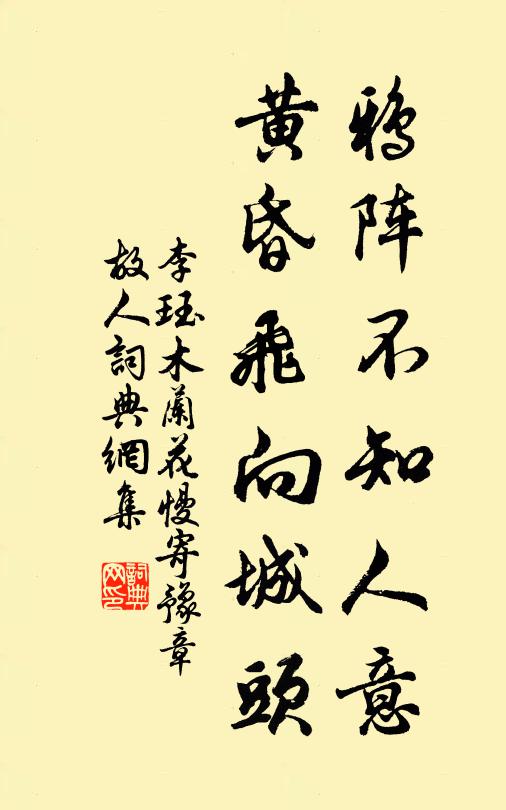 鸦阵不知人意
黄昏飛向城頭
李珏木蘭花慢寄豫章
故人詞典網集
詞典网印